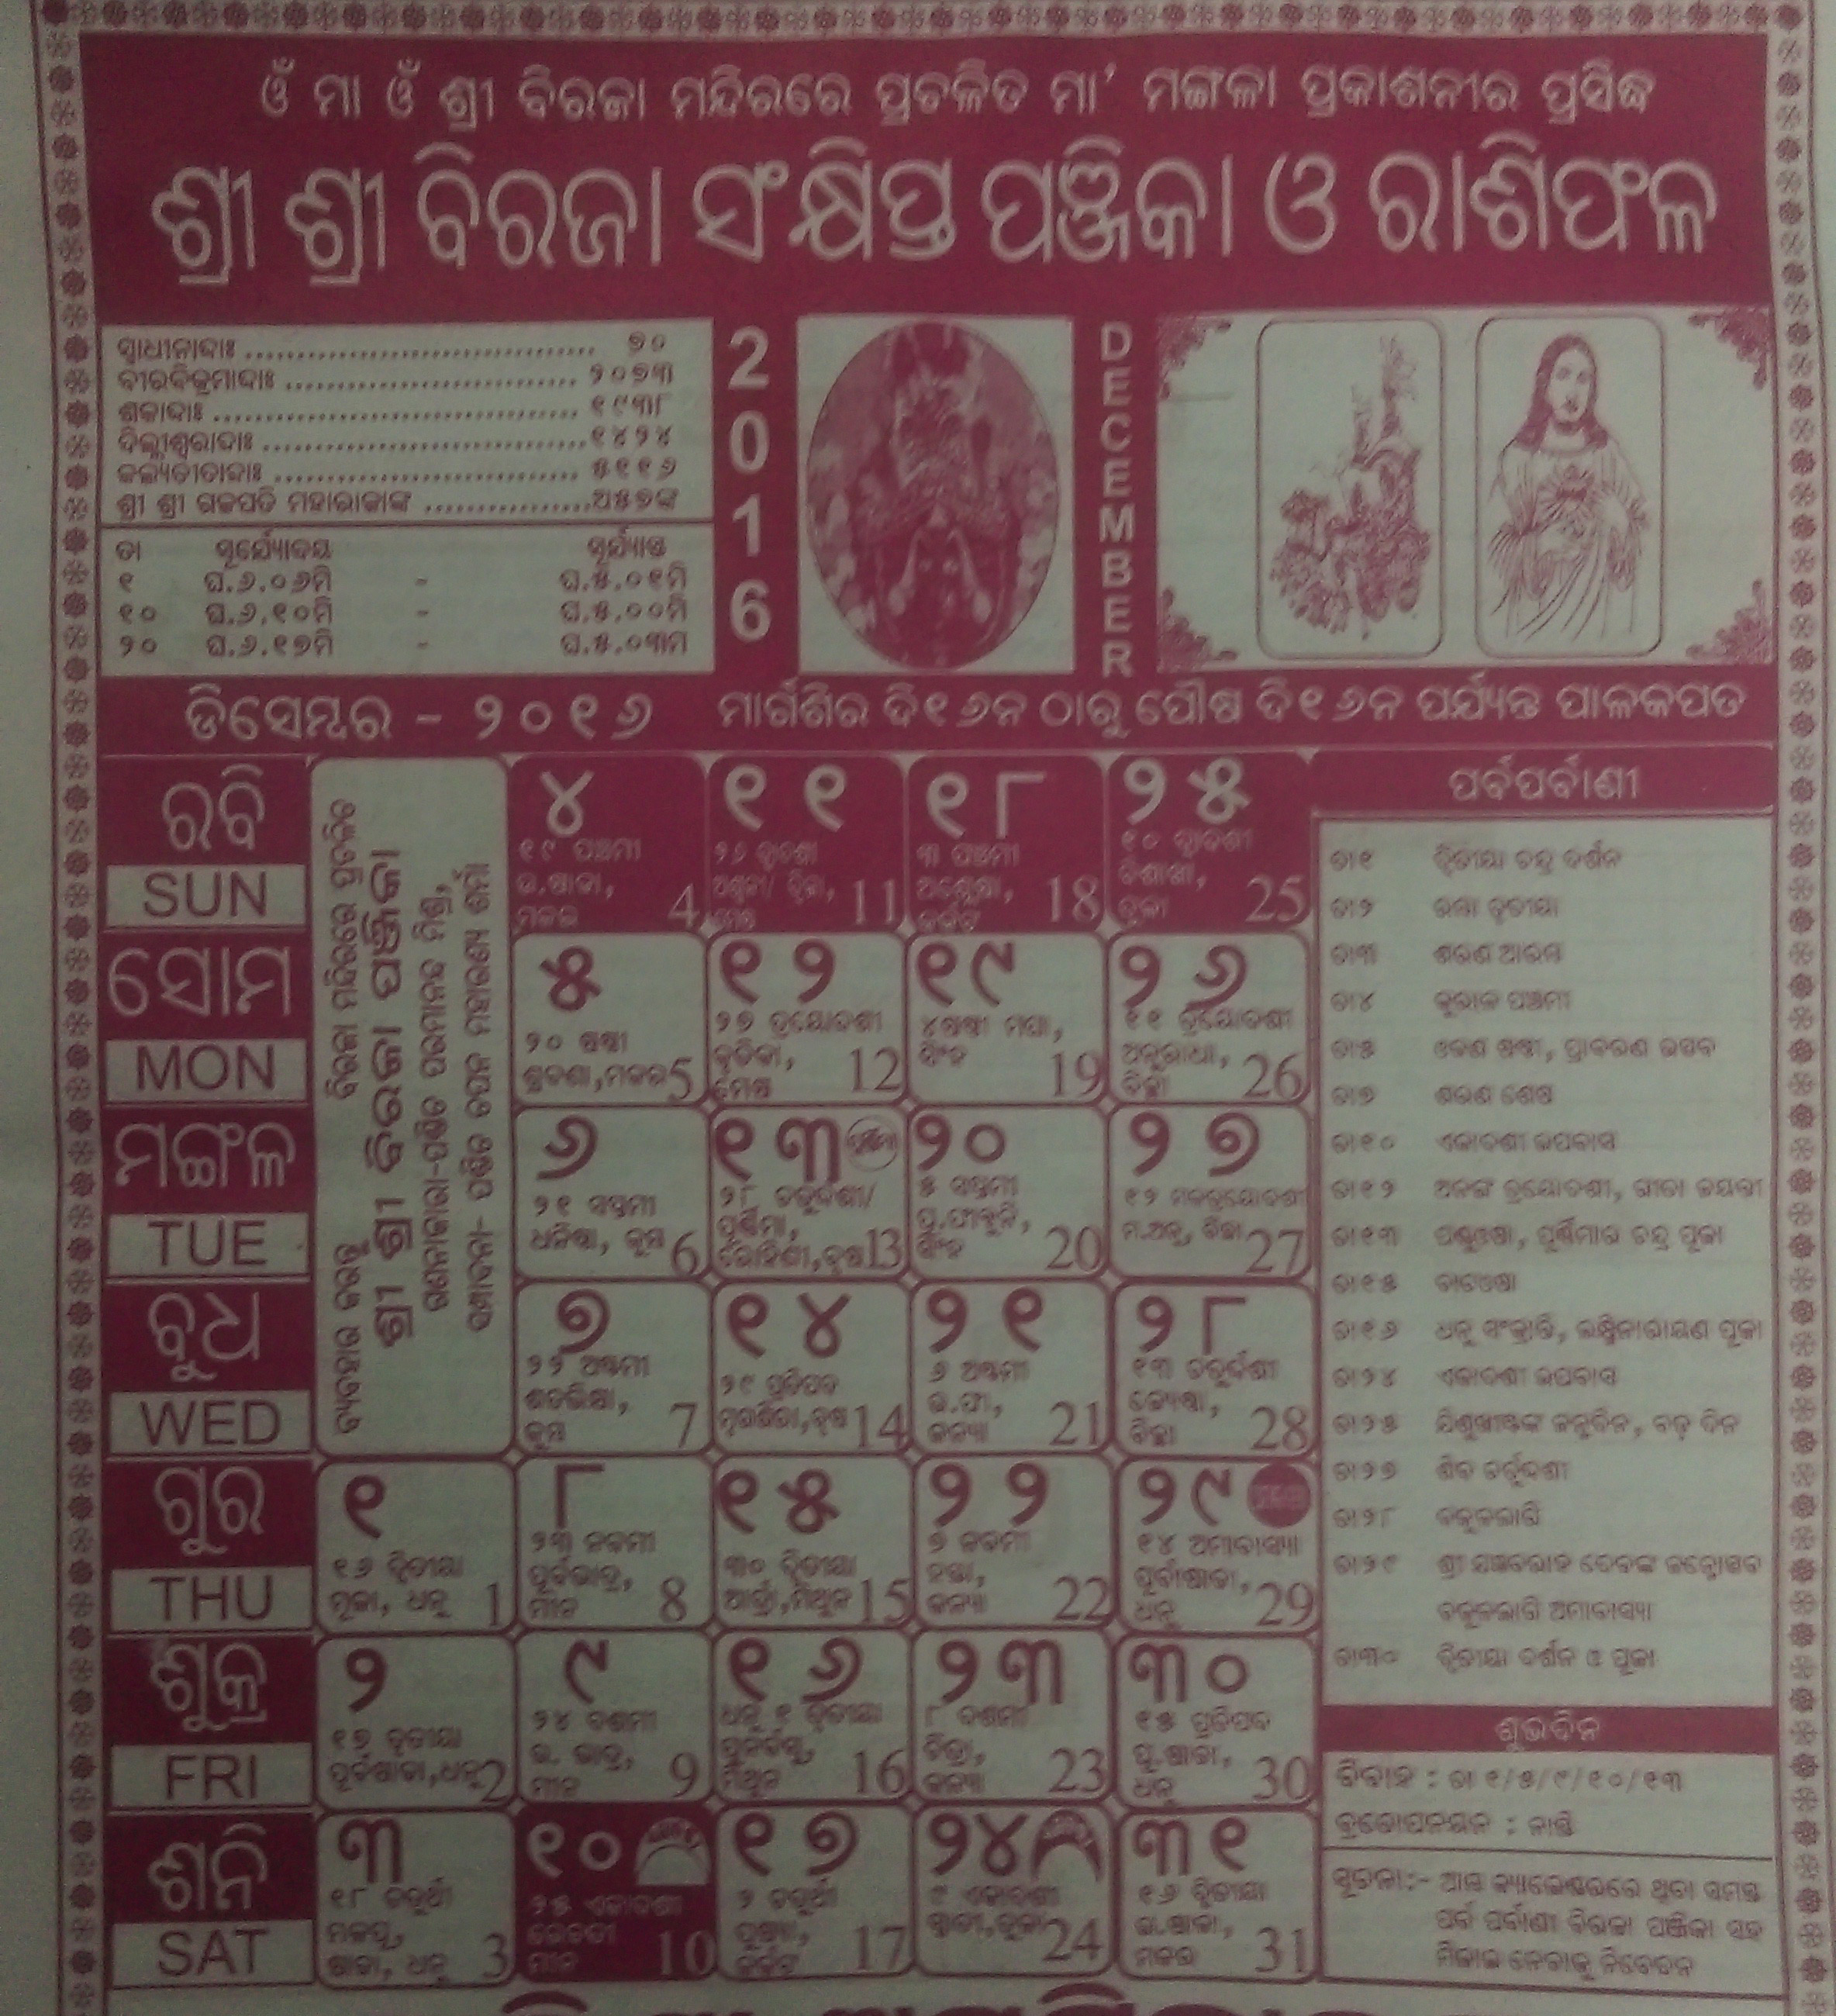 ଓଁ ମା ଓଁ ଶ୍ରୀ ବିରଜା ମନ୍ଦିରରେ ପ୍ରଚଳିତ ମା' ମଙ୍ଗଳା ପ୍ରକାଶନୀର ପ୍ରସିଦ୍ଧ
ଶ୍ରୀ ଶ୍ରୀ ବିରଜା ସଂକ୍ଷିପ୍ତ ପଞ୍ଜିକା ଓ ରାଶିଫଳ
ସ୍ୱାଧୀନାବ୍ଦାଃ .................................. ୭୦
ବୀରବିକ୍ରମାବ୍ଦାଃ ............................. ୨୦୭୩
ଶକାବ୍ଦାଃ .................................... ୧୯୩୮
ଦିଲ୍ଲୀଶ୍ୱରାବ୍ଦାଃ ................................ ୧୪୨୪
କଲ୍ୟବ୍ଦାଃ .............................. ୫୧୧୬
ଶ୍ରୀ ଶ୍ରୀ ଗଜପତି ମହାରାଜାଙ୍କ ................ଅ୫୭ଙ୍କ
ତା ସୂର୍ଯ୍ୟୋଦୟ ସୂର୍ଯ୍ୟାସ୍ତ
୧ ଘ.୬.୦୬ମି - ଘ.୫.୦୧ମି
୧୦ ଘ.୬.୧୦ମି - ଘ.୫.୦୦ମି
୨୦ ଘ.୬.୧୭ମି - ଘ.୫.୦୩ମି
2016
DECEMBER
ଡିସେମ୍ବର - ୨୦୧୬ ମାର୍ଗଶିର ଦି୧୬ନ ଠାରୁ ପୌଷ ଦି୧୬ନ ପର୍ଯ୍ୟନ୍ତ ପାଳକପତ
ବ୍ୟବହାର କରନ୍ତୁ ବିରଜା ମନ୍ଦିରରେ ପ୍ରଚଳିତ
ଶ୍ରୀ ଶ୍ରୀ ବିରଜା ପଞ୍ଜିକା
ଗଣନାକାରୀ-ପଣ୍ଡିତ ପରମାନନ୍ଦ ମିଶ୍ର,
ସମ୍ପାଦନା- ପଣ୍ଡିତ ତପନ ମହାରଣା ଶର୍ମା
ରବି
SUN
୪
୧୯ ପଞ୍ଚମୀ
ଉ.ଷାଢା,
ମକର 4
୧୧
୨୬ ଦ୍ୱାଦଶୀ
ମେଷ 11
୧୮
୩ ପଞ୍ଚମୀ
ଅଶ୍ଳେଷା,
କର୍କଟ 18
୨୫
୧୦ ଦ୍ୱାଦଶୀ
ବିଶାଖା,
ତୁଳା 25
ସୋମ
MON
୫
୨୦ ଷଷ୍ଠୀ
ଶ୍ରବଣା,ମକର 5
୧୨
୨୭ ତ୍ରୟୋଦଶୀ
କୃତିକା,
ମେଷ 12
୧୯
୪ଷଷ୍ଠୀ ମଘା,
ସିଂହ 19
୨୬
୧୧ ତ୍ରୟୋଦଶୀ
ଅନୁରାଧା,
ବିଛା 26
ମଙ୍ଗଳ
TUE
୬
୨୧ ସପ୍ତମୀ
ଧନିଷ୍ଠା, କୁମ୍ଭ 6
୧୩
୨୮ ଚତୁର୍ଦ୍ଦଶୀ/
ପୂର୍ଣ୍ଣିମା,
ରୋହିଣୀ,ବୃଷ 13
୨୦
୫ ସପ୍ତମୀ
ପୂ.ଫାଲ୍ଗୁନି,
ସିଂହ 20
୨୭
୧୨ ମଳତ୍ରୟୋଦଶୀ
ମ.ଅନୁ, ବିଛା 27
ବୁଧ
WED
୭
୨୨ ଅଷ୍ଟମୀ
ଶତଭିଷା,
କୁମ୍ଭ 7
୧୪
୨୯ ପ୍ରତିପଦ
ମୃଗଶିରା,ବୃଷ 14
୨୧
୬ ଅଷ୍ଟମୀ
ଉ.ଫା,
କନ୍ୟା 21
୨୮
୧୩ ଚତୁର୍ଦ୍ଦଶୀ
ଜ୍ୟେଷ୍ଠା,
ବିଛା 28
ଗୁର
THU
୧
୧୬ ଦ୍ୱିତୀୟା
ମୂଳା, ଧନୁ 1
୮
୨୩ ନବମୀ
ପୂର୍ବଭାଦ୍ର,
ମୀନ 8
୧୫
୩୦ ଦ୍ୱିତୀୟା
ଆର୍ଦ୍ରା,ମିଥୁନ 15
୨୨
୭ ନବମୀ
ହସ୍ତା,
କନ୍ୟା 22
୨୯
୧୪ ଅମାବାସ୍ୟା
ପୂର୍ବାଷାଢା,
ଧନୁ 29
ଶୁକ୍ର
FRI
୨
୧୭ ତୃତୀୟା
ପୂର୍ବଷାଢା,ଧନୁ 2
୯
୨୪ ଦଶମୀ
ଉ. ଭାଦ୍ର,
ମୀନ 9
୧୬
ଧନୁ ୧ ତୃତୀୟା
ପୁନର୍ବସୁ,
ମିଥୁନ 16
୨୩
୮ ଦଶମୀ
ଚିତ୍ରା,
କନ୍ୟା 23
୩୦
୧୫ ପ୍ରତିପଦ
ପୂ.ଷାଢା,
ଧନୁ 30
ଶନି
SAT
୩
୧୮ ଚତୁର୍ଥୀ
ଷାଢା, ଧନୁ 3
୧୦
୨୫ ଏକାଦଶୀ
ରେବତୀ
ମୀନ 10
୧୭
୨ ଚତୁର୍ଥୀ
ପୁଷ୍ୟା,
କର୍କଟ 17
୨୪
୯ ଏକାଦଶୀ
ସ୍ୱାତୀ,ତୁଳା 24
୩୧
୧୬ ଦ୍ୱିତୀୟା
ଉ.ଷାଢା,
ମକର 31
ପର୍ବପର୍ବାଣୀ
ତା୧ ଦ୍ୱିତୀୟା ଚନ୍ଦ୍ର ଦର୍ଶନ
ତା୨ ରମ୍ଭା ତୃତୀୟା
ତା୩ ଶରଣ ଆରମ୍ଭ
ତା୪ ପଞ୍ଚମୀ
ତା୫ ଓଢଣ ଷଷ୍ଠୀ, ପ୍ରାବରଣ ଉତ୍ସବ
ତା୭ ଶରଣ ଶେଷ
ତା୧୦ ଏକାଦଶୀ ଉପବାସ
ତା୧୨ ଅନଙ୍ଗ ତ୍ରୟୋଦଶୀ, ଗୀତା ଜୟନ୍ତୀ
ତା୧୩ ପାଣ୍ଡୁଓଷା, ପୂର୍ଣ୍ଣିମୀର ଚନ୍ଦ୍ର ପୂଜା
ତା୧୫ ବାଟଓଷା
ତା୧୬ ଧନୁ ସଂକ୍ରାନ୍ତି, ଲକ୍ଷ୍ମୀନାରାୟଣ ପୂଜା
ତା୨୪ ଏକାଦଶୀ ଉପବାସ
ତା୨୫ ଯିଶୁଖ୍ରୀଷ୍ଟଙ୍କ ଜନ୍ମଦିନ, ବଡ଼ ଦିନ
ତା୨୭ ଶିବ ଚତୁର୍ଦ୍ଦଶୀ
ତା୨୮ ବକୁଳଲାଗି
ତା୨୯ ଶ୍ରୀ ଯଜ୍ଞବରାହ ଦେବଙ୍କ ଜନ୍ମୋତ୍ସବ
ବକୁଳଲାଗି ଅମାବାସ୍ୟା
ତା୩୦ ଦ୍ୱିତୀୟା ଦର୍ଶନ ଓ ପୂଜା
ଶୁଭଦିନ
ବିବାହ : ତା ୧/୫/୯/୧୦/୧୩
ବ୍ରତୋପନୟନ : ନାସ୍ତି
ସୂଚନା:- ଆମ କ୍ୟାଲେଣ୍ଡରରେ ଥିବା ସମସ୍ତ
ପର୍ବ ପର୍ବାଣୀ ବିରଜା ପଞ୍ଜିକା ସହ
ମିଳାଇ ନେବାକୁ ନିବେଦନ